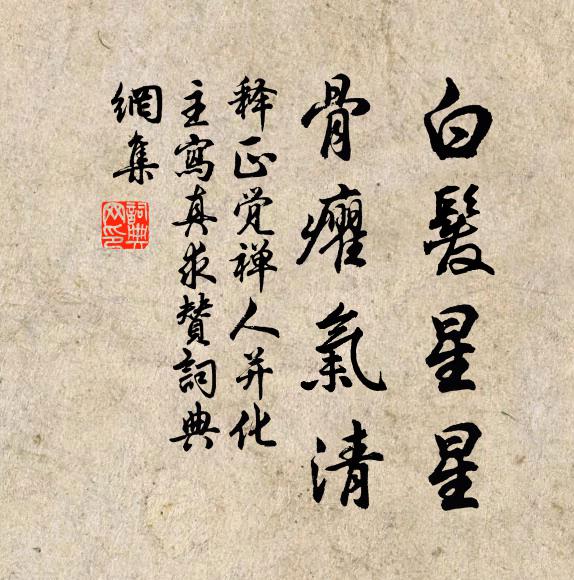 白髮星星
骨癯氣清
释正觉禅人并化
主寫真求贊詞典
網集
詞典
网印